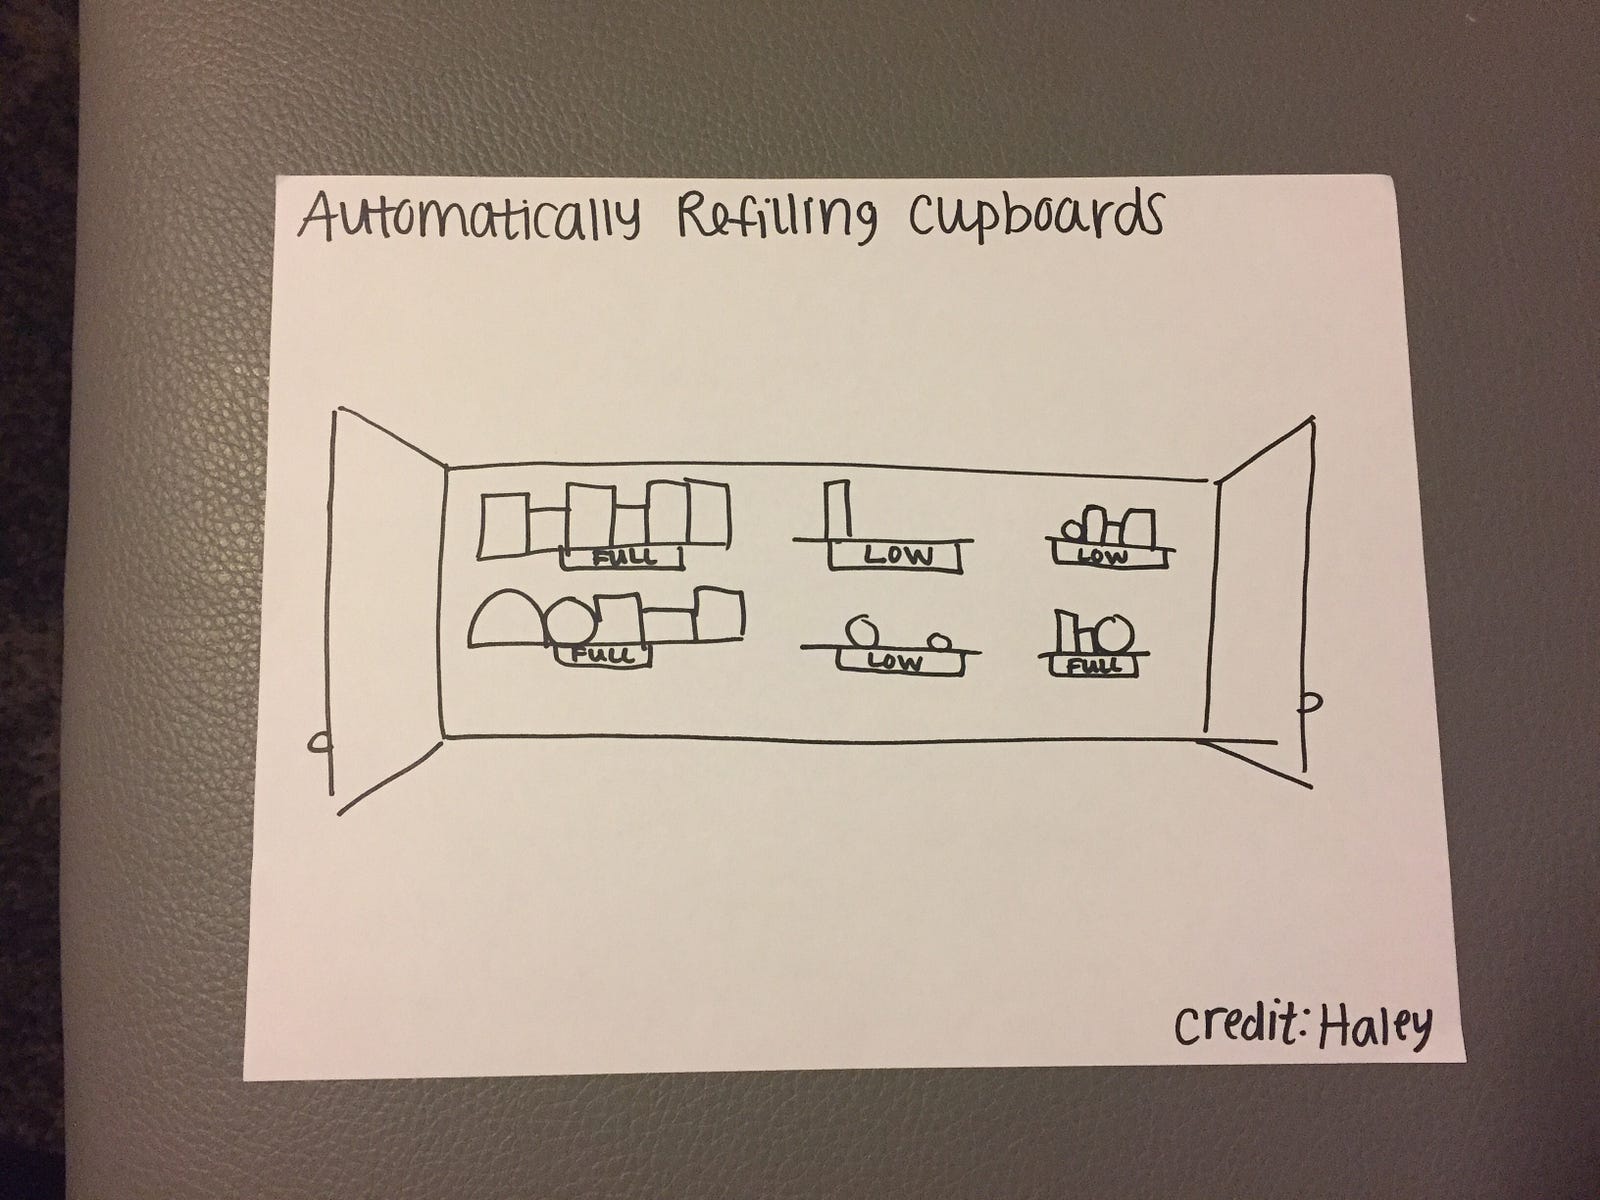 Automatically Refilling Cupboards
FULL
LOW
LOW
FULL
LOW
FULL
credit: Haley